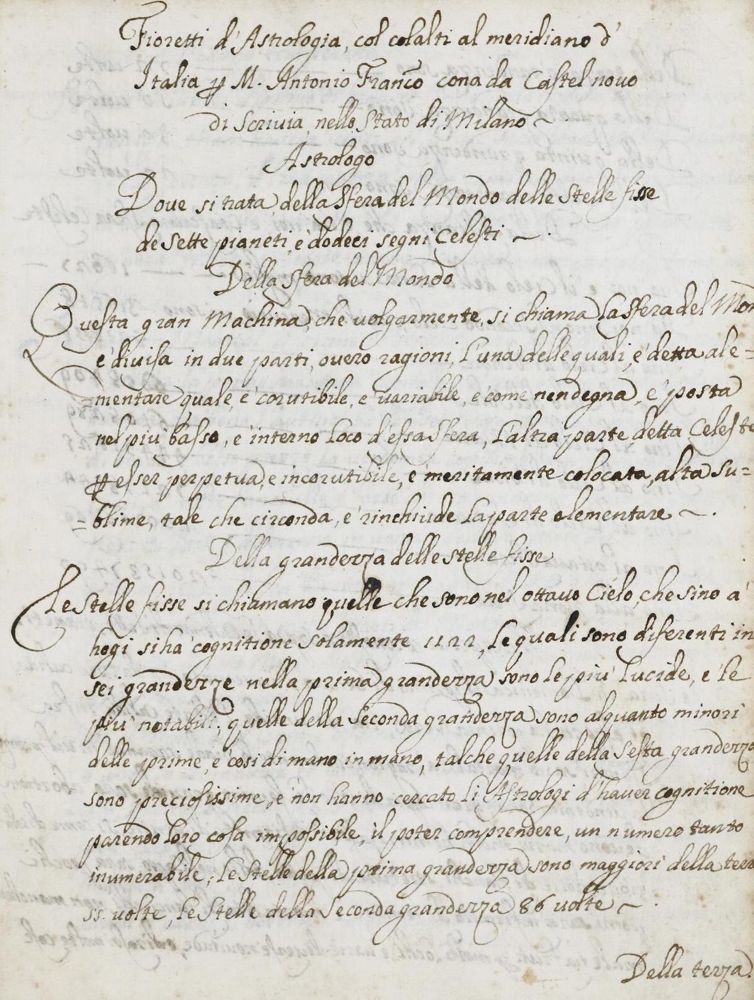 Fioretti d'Astrologia, col colalti al meridiano d'
Italia ꝑ M. Antonio Franco cona da Castel novo
di Scrivia, nello Stato di Milano ~
Astrologo
Dove si trata della Sfera del Mondo delle stelle fisse
de Sette pianeti, è dodeci segni Celesti ~ .
Della sfera del Mondo
Questa gran Machina, che volgarmente, si chiama La Sfera del Mon
e divisa in due parti, overo ragioni, L'una delle quali, è detta ale=
=mentare quale, è corutibile, e variabile, e come nen degna, è posta
nel più basso, e interno Loco d'essa Sfera, L'altra parte detta Celeste
ꝑ esser perpetua, e incorutibile, e meritamente colocata, alta su=
=blime, tale che circonda, e rinchiude La parte elementare ~ .
Della granderza delle stelle fisse
Le Stelle fisse si chiamano quelle che sono nel ottavo Cielo, che sino à
hogi si ha cognitione Solamente 1122, Le quali sono diferenti in
sei granderze nella prima granderza sono Le più Lucide, e Le
più notabili, quelle della Seconda granderza sono alquanto minori
delle prime, e cosi di mano in mano, talche quelle della Sesta granderza
sono preciosissime, e non hanno cercato Li Astrologi d'haver cognitione
parendo Loro cosa impossibile, il poter comprendere, un numero tanto
inumerabile, Le Stelle della prima granderza sono maggiori della terra
volte, Le Stelle della Seconda granderza 86 volte ~ .
Della terza